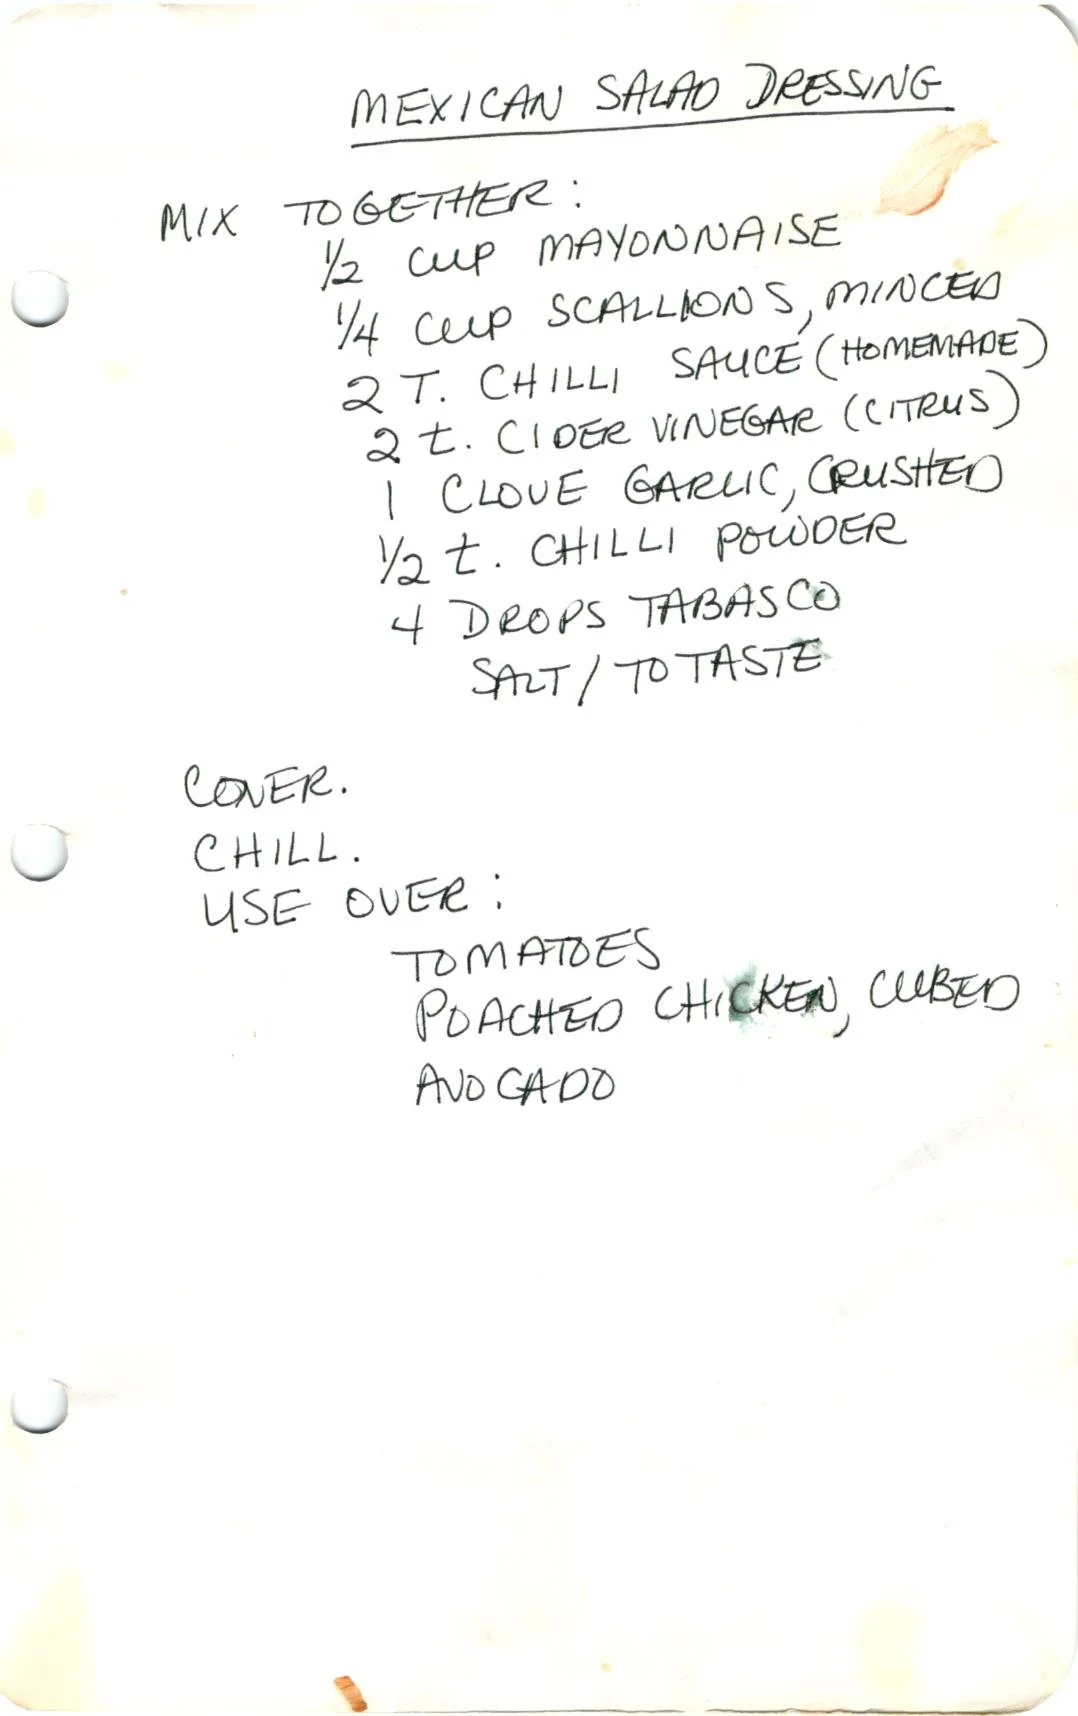 MEXICAN SALAD DRESSING
MIX TOGETHER:
1/2 CUP MAYONNAISE
1/4 CUP SCALLIONS, MINCED
2 T. CHILLI SAUCE (HOMEMADE)
2 t. CIDER VINEGAR (CITRUS)
1 CLOVE GARLIC, CRUSHED
1/2 t. CHILLI POWDER
4 DROPS TABASCO
SALT / TO TASTE
COVER.
CHILL.
USE OVER:
TOMATOES
POACHED CHICKEN, CUBED
AVOCADO